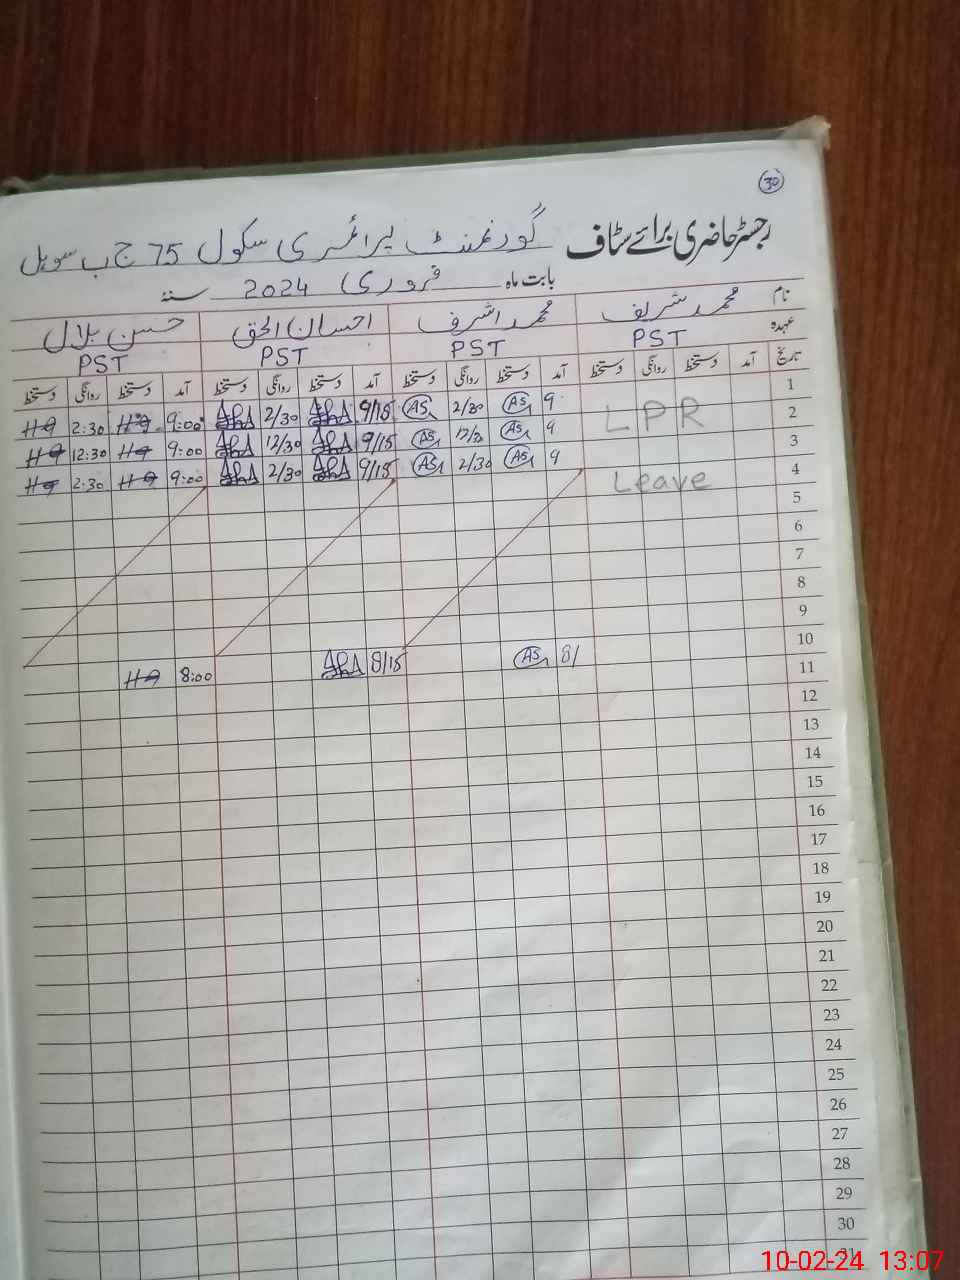 30
رجسٹر حاضری برائے سٹاف گورنمنٹ پرائمری سکول 75 ج ب سوہل
بابت ماہ فروری 2024 سنہ
نام محمد شریف محمد اشرف احسان الحق حسن بلال
عہدہ PST PST PST PST
تاریخ آمد دستخط روانگی دستخط آمد دستخط روانگی دستخط آمد دستخط روانگی دستخط آمد دستخط روانگی دستخط
1 9 AS 2/30 AS 9/15 2/30 9:00 2:30
2 LPR 9 AS 12/30 AS 9/15 12/30 9:00 12:30
3 9 AS 2/30 AS 9/15 2/30 9:00 2:30
4 Leave
5
6
7
8
9
10 8/ AS 8/15 8:00
11
12
13
14
15
16
17
18
19
20
21
22
23
24
25
26
27
28
29
30
31
10-02-24 13:07